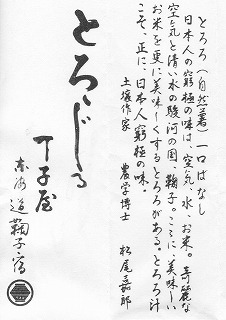 とろろ(自然薯)一口ばなし
日本人の窮極の味は、空気、水、お米。奇麗な
空気と清い水の駿河の国、鞠子。ここに、美味しい
お米を更に美味しくするとろろがある。とろろ汁
こそ、正に、日本人窮極の味。
土壌作家
農学博士 松尾嘉郎
とろろじる
丁子屋
東海道鞠子宿